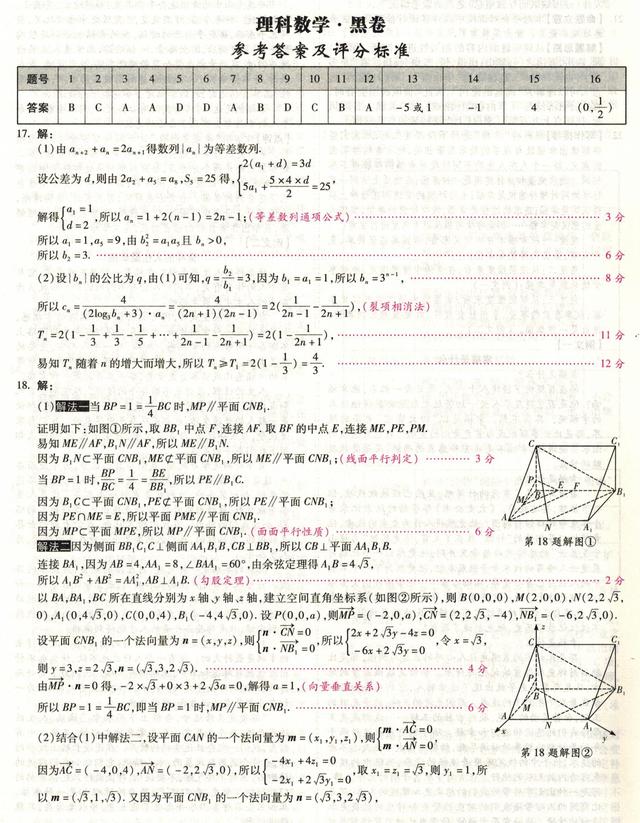 理科数学·黑卷
参考答案及评分标准
题号 1 2 3 4 5 6 7 8 9 10 11 12 13 14 15 16
答案 B C A A D D A B D C B A -5或1 -1 4 (0,1/2)
17. 解:
(1)由a_{n+2}+a_n=2a_{n+1},得数列{a_n}为等差数列.
设公差为d,则由2a_2+a_5=a_8,S_5=25得,{2(a_1+d)=3d
5a_1+(5×4×d)/2=25,
解得{a_1=1
d=2,所以a_n=1+2(n-1)=2n-1;(等差数列通项公式) 3分
所以a_1=1,a_5=9,由b_2^2=a_1a_5且b_n>0,
所以b_2=3. 6分
(2)设{b_n}的公比为q,由(1)可知,q=b_2/b_1=3,因为b_1=a_1=1,所以b_n=3^{n-1}, 8分
所以c_n=4/((2log_3b_n+3)·a_n)=4/((2n+1)(2n-1))=2(1/(2n-1)-1/(2n+1)),(裂项相消法)
T_n=2(1-1/3+1/3-1/5+…+1/(2n-1)-1/(2n+1))=2(1-1/(2n+1)), 11分
易知T_n随着n的增大而增大,所以T_n≥T_1=2(1-1/3)=4/3. 12分
18. 解:
(1)解法一当BP=1=1/4BC时,MP∥平面CNB_1.
证明如下:如图①所示,取BB_1中点F,连接AF.取BF的中点E,连接ME,PE,PM.
易知ME∥AF,B_1N∥AF,所以ME∥B_1N.
因为B_1N⊂平面CNB_1,ME⊄平面CNB_1,所以ME∥平面CNB_1;(线面平行判定) 3分
当BP=1时,BP/BC=1/4=BE/BB_1,所以PE∥B_1C.
因为B_1C⊂平面CNB_1,PE⊄平面CNB_1,所以PE∥平面CNB_1;
因为PE∩ME=E,所以平面PME∥平面CNB_1.
因为MP⊂平面MPE,所以MP∥平面CNB_1.(面面平行性质) 6分
第18题解图①
解法二因为侧面BB_1C_1C⊥侧面AA_1B_1B,CB⊥BB_1,所以CB⊥平面AA_1B_1B.
连接BA_1,因为AB=4,AA_1=8,∠BAA_1=60°,由余弦定理得A_1B=4√3,
所以A_1B^2+AB^2=AA_1^2,AB⊥A_1B.(勾股定理) 2分
以BA,BA_1,BC所在直线分别为x轴、y轴、z轴,建立空间直角坐标系(如图②所示),则B(0,0,0),M(2,0,0),N(2,2√3,
0),A_1(0,4√3,0),C(0,0,4),B_1(-4,4√3,0).设P(0,0,a),则MP=(-2,0,a),CN=(2,2√3,-4),NB_1=(-6,2√3,0).
设平面CNB_1的一个法向量为n=(x,y,z),则{n·CN=0
n·NB_1=0,所以{2x+2√3y-4z=0
-6x+2√3y=0,令x=√3,
则y=3,z=2√3,n=(√3,3,2√3). 4分
由MP·n=0得,-2×√3+0×3+2√3a=0,解得a=1,(向量垂直关系)
所以BP=1=1/4BC,即当BP=1时,MP∥平面CNB_1. 6分
(2)结合(1)中解法二,设平面CAN的一个法向量为m=(x_1,y_1,z_1),则{m·AC=0
m·AN=0,
第18题解图②
因为AC=(-4,0,4),AN=(-2,2√3,0),所以{-4x_1+4z_1=0
-2x_1+2√3y_1=0,取x_1=z_1=√3,则y_1=1,所
以m=(√3,1,√3).又因为平面CNB_1的一个法向量为n=(√3,3,2√3),